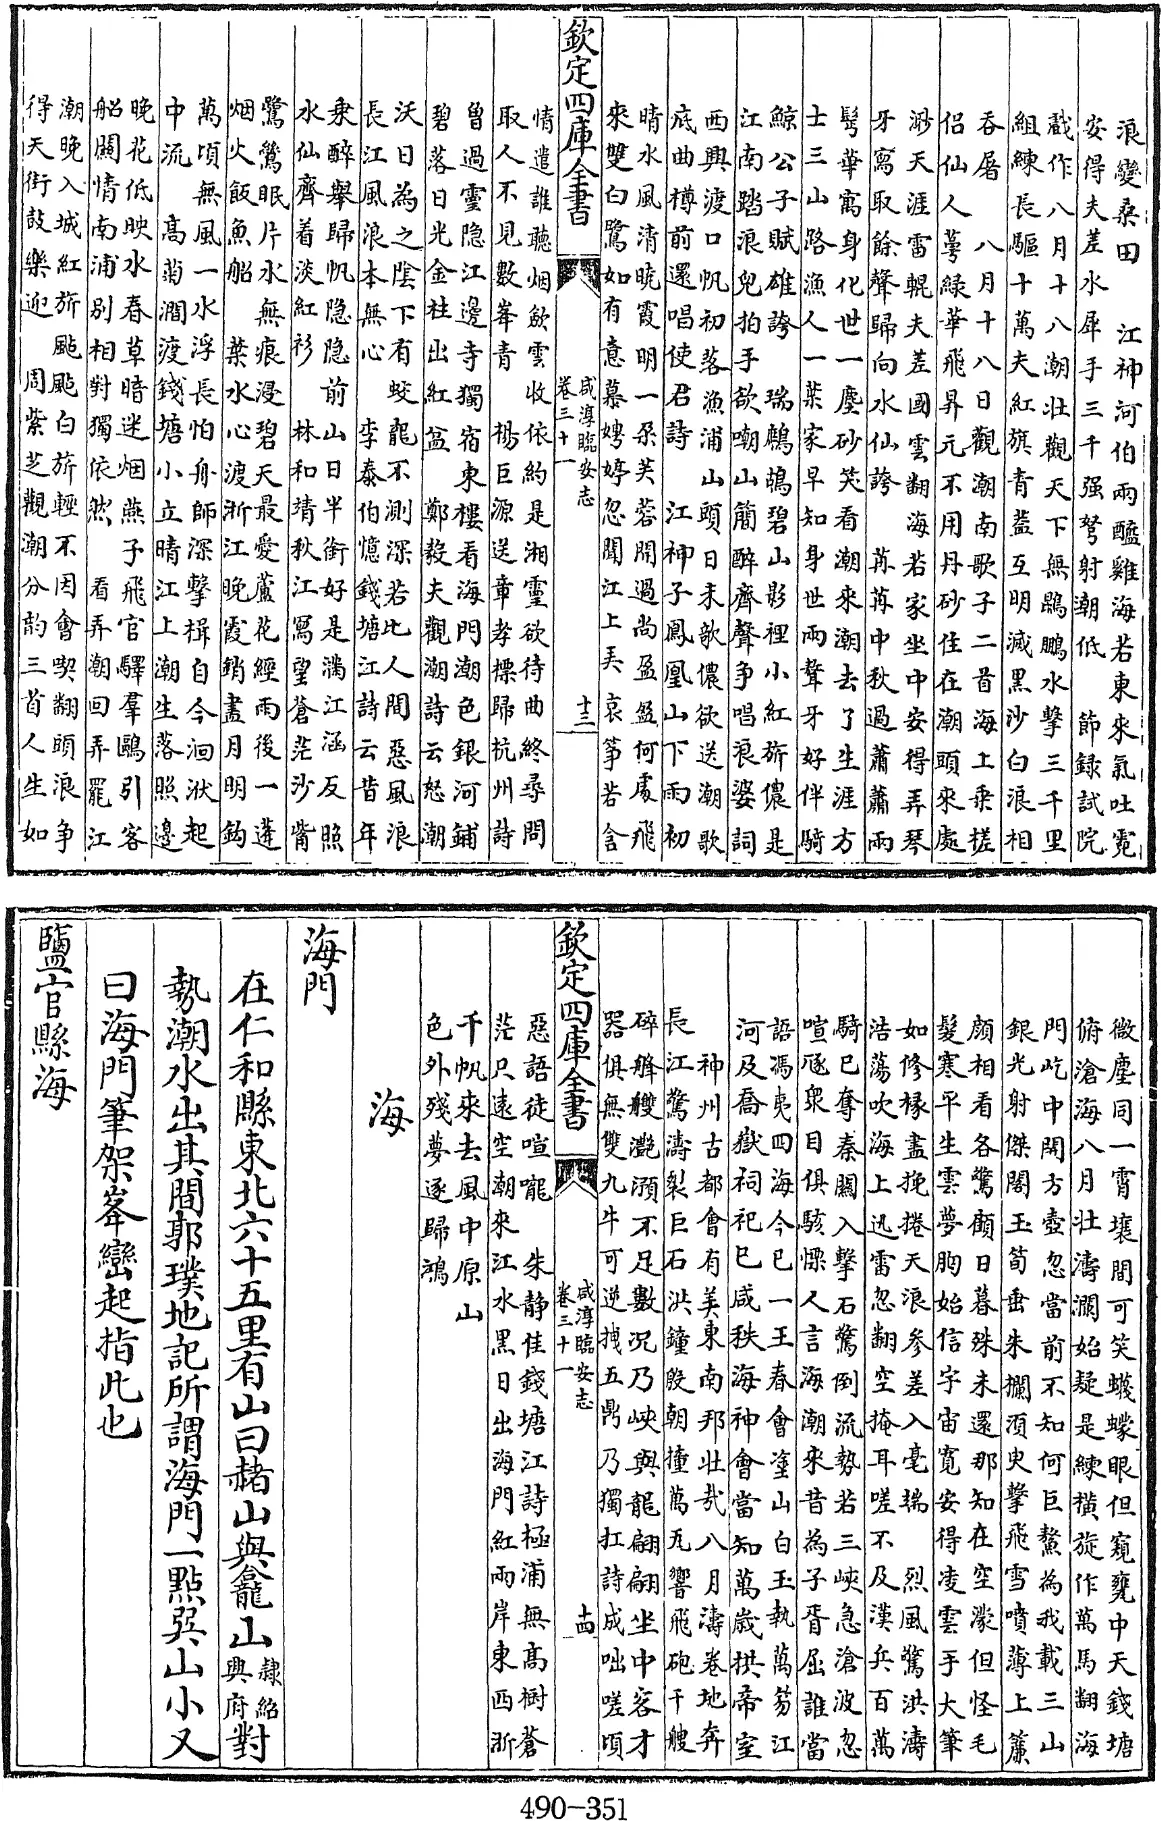 浪變桑田　江神河伯兩醯雞海若東來氣吐霓
安得夫差水犀手三千强弩射潮低　節録試院
戯作八月十八潮壯觀天下無鵾鵬水擊三千里
組練長驅十萬夫紅旗青葢互明滅黒沙白浪相
吞屠　八月十八日觀潮南歌子二首海上乗槎
侣仙人蕚緑華飛昇元不用丹砂住在潮頭來處
渺天涯雷輥夫差國雲翻海若家坐中安得弄琴
牙寫取餘聲歸向水仙誇　苒苒中秋過蕭蕭兩
髩華寓身化世一塵砂笑看潮來潮去了生涯方
士三山路漁人一葉家早知身世兩聱牙好伴騎
鯨公子賦雄誇　瑞鷓鴣碧山影裡小紅旂儂是
江南踏浪兒拍手欲嘲山簡醉齊聲争唱浪婆詞
西興渡口帆初落漁浦山頭日未欹儂欲送潮歌
底曲樽前還唱使君詩　江神子鳳凰山下雨初
晴水風清晚霞明一朶芙蓉開過尚盈盈何處飛
來雙白鷺如有意慕娉婷忽聞江上弄哀箏苦含
欽定四庫全書
咸淳臨安志
卷三十一
十三
情遣誰聽烟歛雲收依約是湘靈欲待曲終尋問
取人不見數峯青　楊巨源送章孝標歸杭州詩
曽過靈隐江邊寺獨宿東樓看海門潮色銀河鋪
碧落日光金柱出紅盆　鄭毅夫觀潮詩云怒潮
沃日為之陰下有蛟龍不測深若比人間惡風浪
長江風浪本無心　李泰伯憶錢塘江詩云昔年
乗醉舉歸帆隐隐前山日半銜好是滿江涵反照
水仙齊着淡紅衫　林和靖秋江寫望蒼茫沙觜
鷺鷥眠片水無痕浸碧天最愛蘆花經雨後一蓬
烟火飯魚船　葉水心渡浙江晚霞銷盡月明鈎
萬頃無風一水浮長怕舟師深擊楫自今洄洑起
中流　高菊磵渡錢塘小立晴江上潮生落照邉
晚花低映水春草暗迷烟燕子飛官驛羣鷗引客
船闗情南浦别相對獨依然　看弄潮回弄罷江
潮晚入城紅旂颭颭白旂輕不因會喫翻頭浪争
得天街鼓樂迎　周紫芝觀潮分韵三首人生如
微塵同一霄壤間可笑蠛蠓眼但窺甕中天錢塘
俯滄海八月壮濤瀾始疑是練横旋作萬馬翻海
門屹中開方壺忽當前不知何巨鰲為我載三山
銀光射傑閣玉筍垂朱欄須臾擊飛雪噴薄上簾
顔相看各驚顧日暮殊未還那知在空濛但怪毛
髮寒平生雲夢胸始信宇宙寛安得凌雲手大筆
如修椽盡挽捲天浪參差入毫端　烈風驚洪濤
浩蕩吹海上迅雷忽翻空掩耳嗟不及漢兵百萬
騎已奪秦闗入擊石驚倒流勢若三峽急滄波忽
喧豗衆目俱駭慄人言海潮來昔為子胥屈誰當
語馮夷四海今已一王春會塗山白玉執萬笏江
河及喬嶽祠祀巳咸秩海神會當知萬歲拱帝室
神州古都會有美東南邦壮哉八月濤卷地奔
長江驚濤裂巨石洪鐘殷朝撞萬瓦響飛砲千艘
碎艂艭灔澦不足數況乃峽與龍翩翩坐中客才
器俱無雙九牛可逆拽五鼎乃獨扛詩成咄嗟頃
欽定四庫全書
咸淳臨安志
卷三十一
十四
惡語徒喧嚨　朱静佳錢塘江詩極浦無髙樹蒼
茫只逺空潮來江水黒日出海門紅兩岸東西浙
千帆來去風中原山
色外殘夢逐歸鴻
海
海門
在仁和縣東北六十五里有山曰赭山與龕山隸紹興府對
勢潮水出其間郭璞地記所謂海門一點巽山小又
曰海門筆架峯巒起指此也
鹽官縣海
490-351